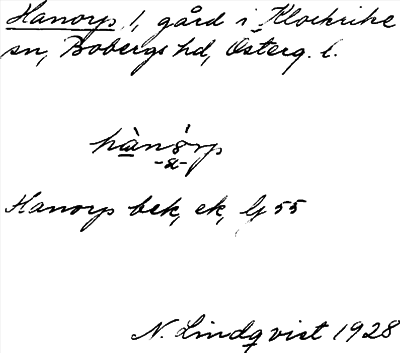 Hanorp, 1, gård i Klockrike
sn, Bobergs hd, Österg. l.
hànórp
-st-
Hanorp bek, ek, lj 55
N. Lindqvist 1928